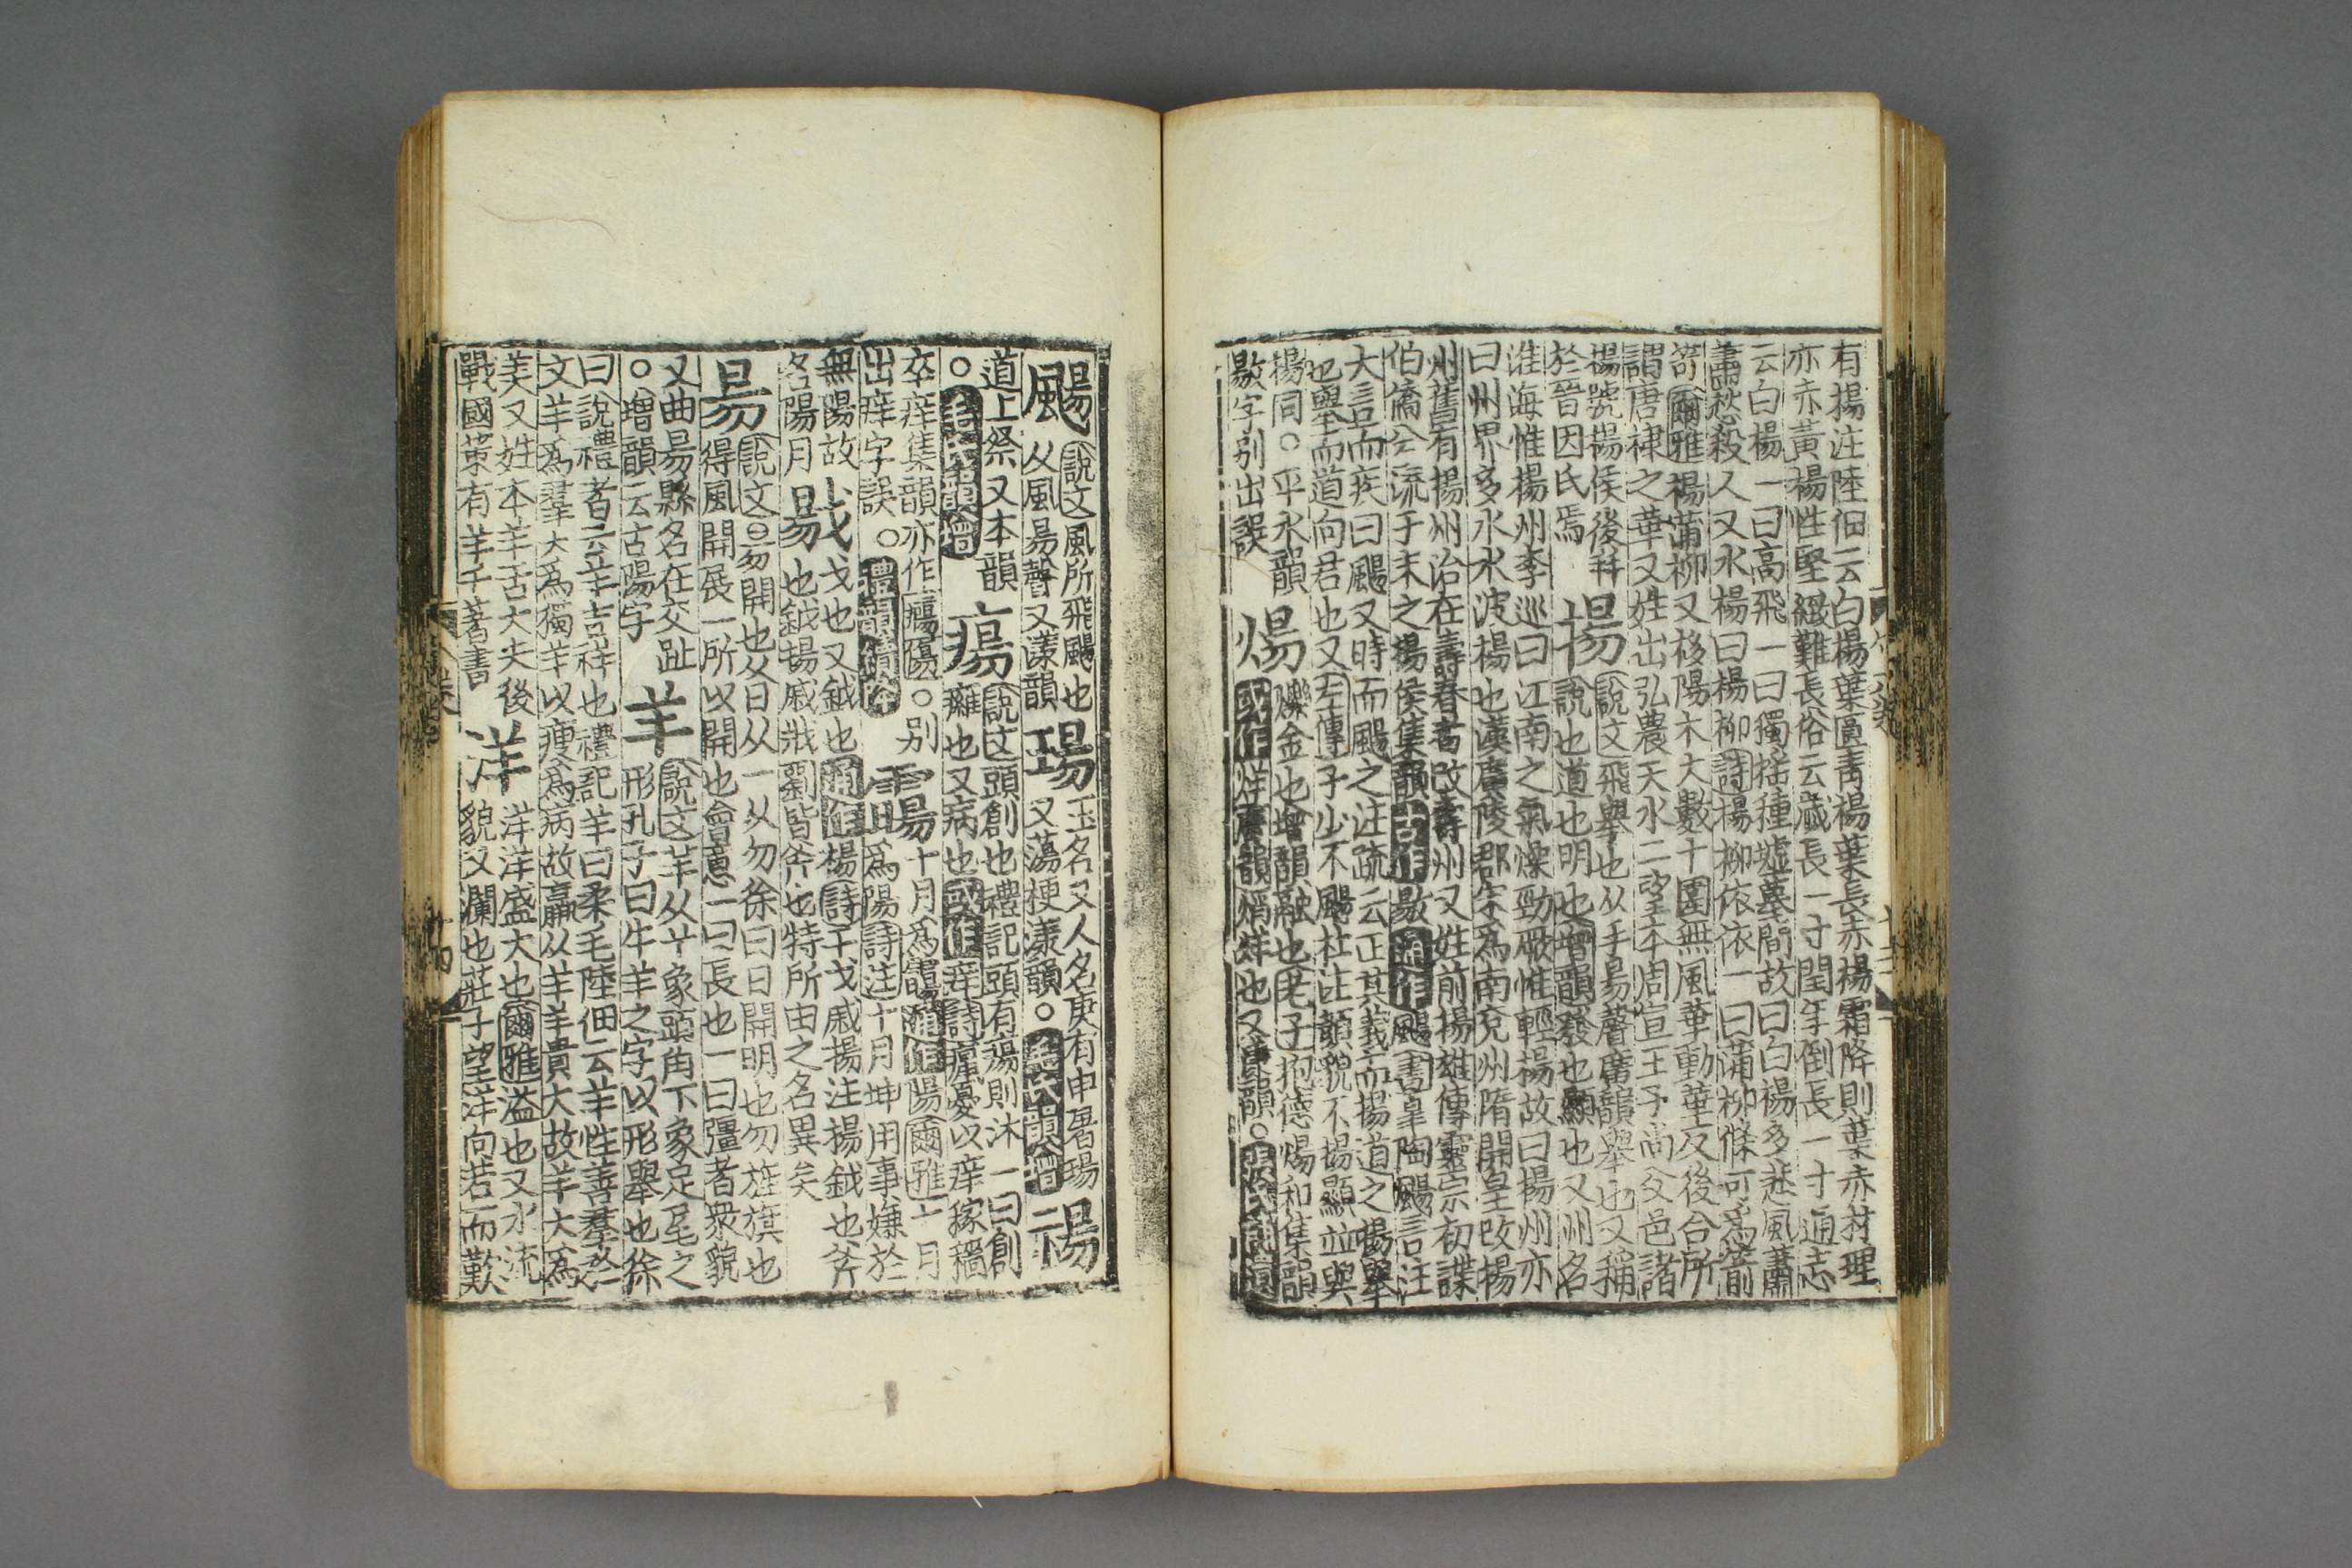 有揚注陸佃云白楊葉圓青楊葉長赤楊霜降則葉赤材理
亦赤黃楊性堅緻難長俗云歲長一寸閏年倒長一寸通志
云白楊一曰高飛一曰獨搖種墟墓間故曰白楊多悲風蕭
蕭愁殺人又水楊曰楊柳詩楊柳依依一曰蒲柳條可爲箭
笴爾雅楊蒲柳又栘陽木大數十圍無風華動華反後合所
謂唐棣之華又姓出弘農天水二望本周宣王子尚父邑諸
楊號楊侯後幷
於晉因氏焉
揚
說文飛舉也从手昜聲廣韻舉也又稱
說也道也明也增韻發也顯也又州名
淮海惟楊州李巡曰江南之氣燥勁厥性輕揚故曰楊州亦
曰州界多水水波揚也漢廣陵郡宋爲南兗州隋開皇改揚
州舊有揚州治在壽春者改壽州又姓前揚雄傳靈宗初諜
伯僑分流于末之揚侯集韻古作敭通作颺書皐陶颺言注
大言而疾曰颺又時而颺之注疏云正其義而揚道之揚舉
也舉而道向君也又左傳子少不颺杜注顔貌不揚顯並與
揚同○平水韻
敭字别出誤
煬
爍金也增韻融也老子抱德煬和集韻
或作烊廣韻焇烊也又漾韻○
颺
說文風所飛颺也
从風昜聲又漾韻
瑒
玉名又人名庚有申屠瑒
又蕩梗漾韻○毛氏韻增
禓
道上祭又本韻
○毛氏韻增
瘍
說文頭創也禮記頭有瘍則沐一曰創
癰也又病也或作痒詩癙憂以痒稼穡
卒痒集韻亦作○别
出痒字誤○禮部韻續降
霷
十月爲霷通作陽爾雅十月
爲陽詩注十月坤用事嫌於
無陽故
名陽月
戈也又鉞也通作楊詩干戈戚揚注揚鉞也斧
也鉞揚戚戕劉皆斧也特所由之名異矣
昜
說文昜開也从日从一从勿徐曰日開明也勿旌旗也
得風開展一所以開也會意一曰長也一曰彊者衆貌
又曲昜縣名在交趾
○增韻云古陽字
羊
說文羊从𦫳象頭角下象足尾之
形孔子曰牛羊之字以形舉也徐
曰說禮者云羊吉祥也禮記羊曰柔毛陸佃云羊性善羣於
文羊爲羣犬爲獨羊以瘦爲病故羸从羊羊貴大故羊大爲
美又姓本羊舌大夫後
戰國策有羊千著書
洋
洋洋盛大也爾雅溢也又水流
貌又瀾也莊子望洋向若而歎